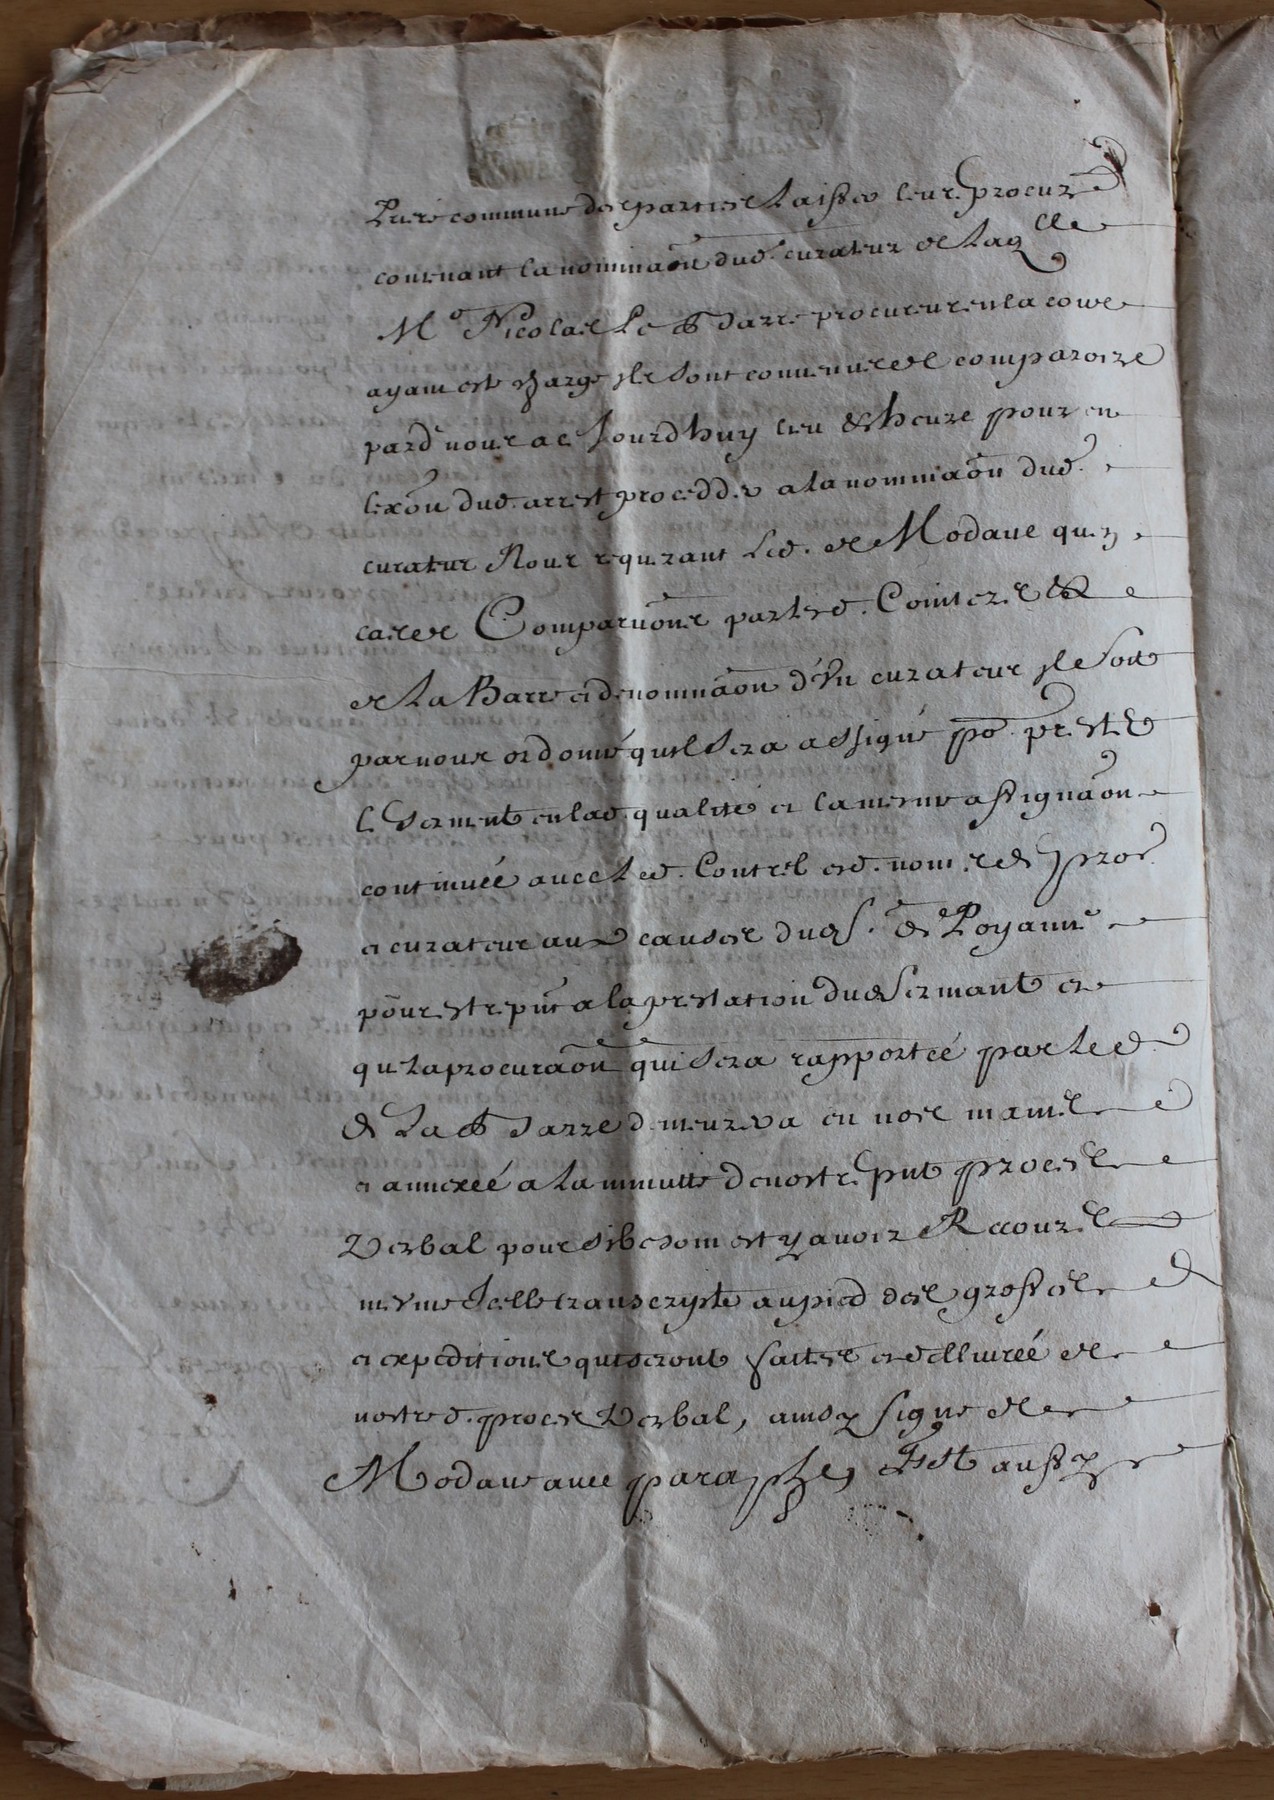 commune des parties laisser leur procur
contenant la nominaon dud. curateur de laqlle
Me Nicolas procureur en la cour
ayant esté chargé ils sont convenus de comparoire
pard nous a ce Jourdhuy lieu et heure pour en
lexon dud. arrest procedder a la nominaon dud.
curateur Nous requerant led. de Modaue quen
cas de Comparuons par lesd. Cointeres et
de La Barre et denominaon d'un curateur il soit
par nous ordonné quil sera assigné po. prester
le serment en lad. qualité et la mesme assignaon
continuée avec led. Contesl esd. noms et pror
et curateur aux causes dud S. de Poyanne
pour estre pnt a la prestation dud serment et
que la procuraon qui sera rapportée par led.
de La Barre demeurera en nos mains
et annexée a la minutte de nostre pnt procès
Verbal pour si besoin est y avoir Recours
mesme Icelle transcripte au pied des grosses
et expeditions qui seront faites et dellivrée de
nostred. procès Verbal, ainsy signé de
Modaue avec paraphe, Est aussy